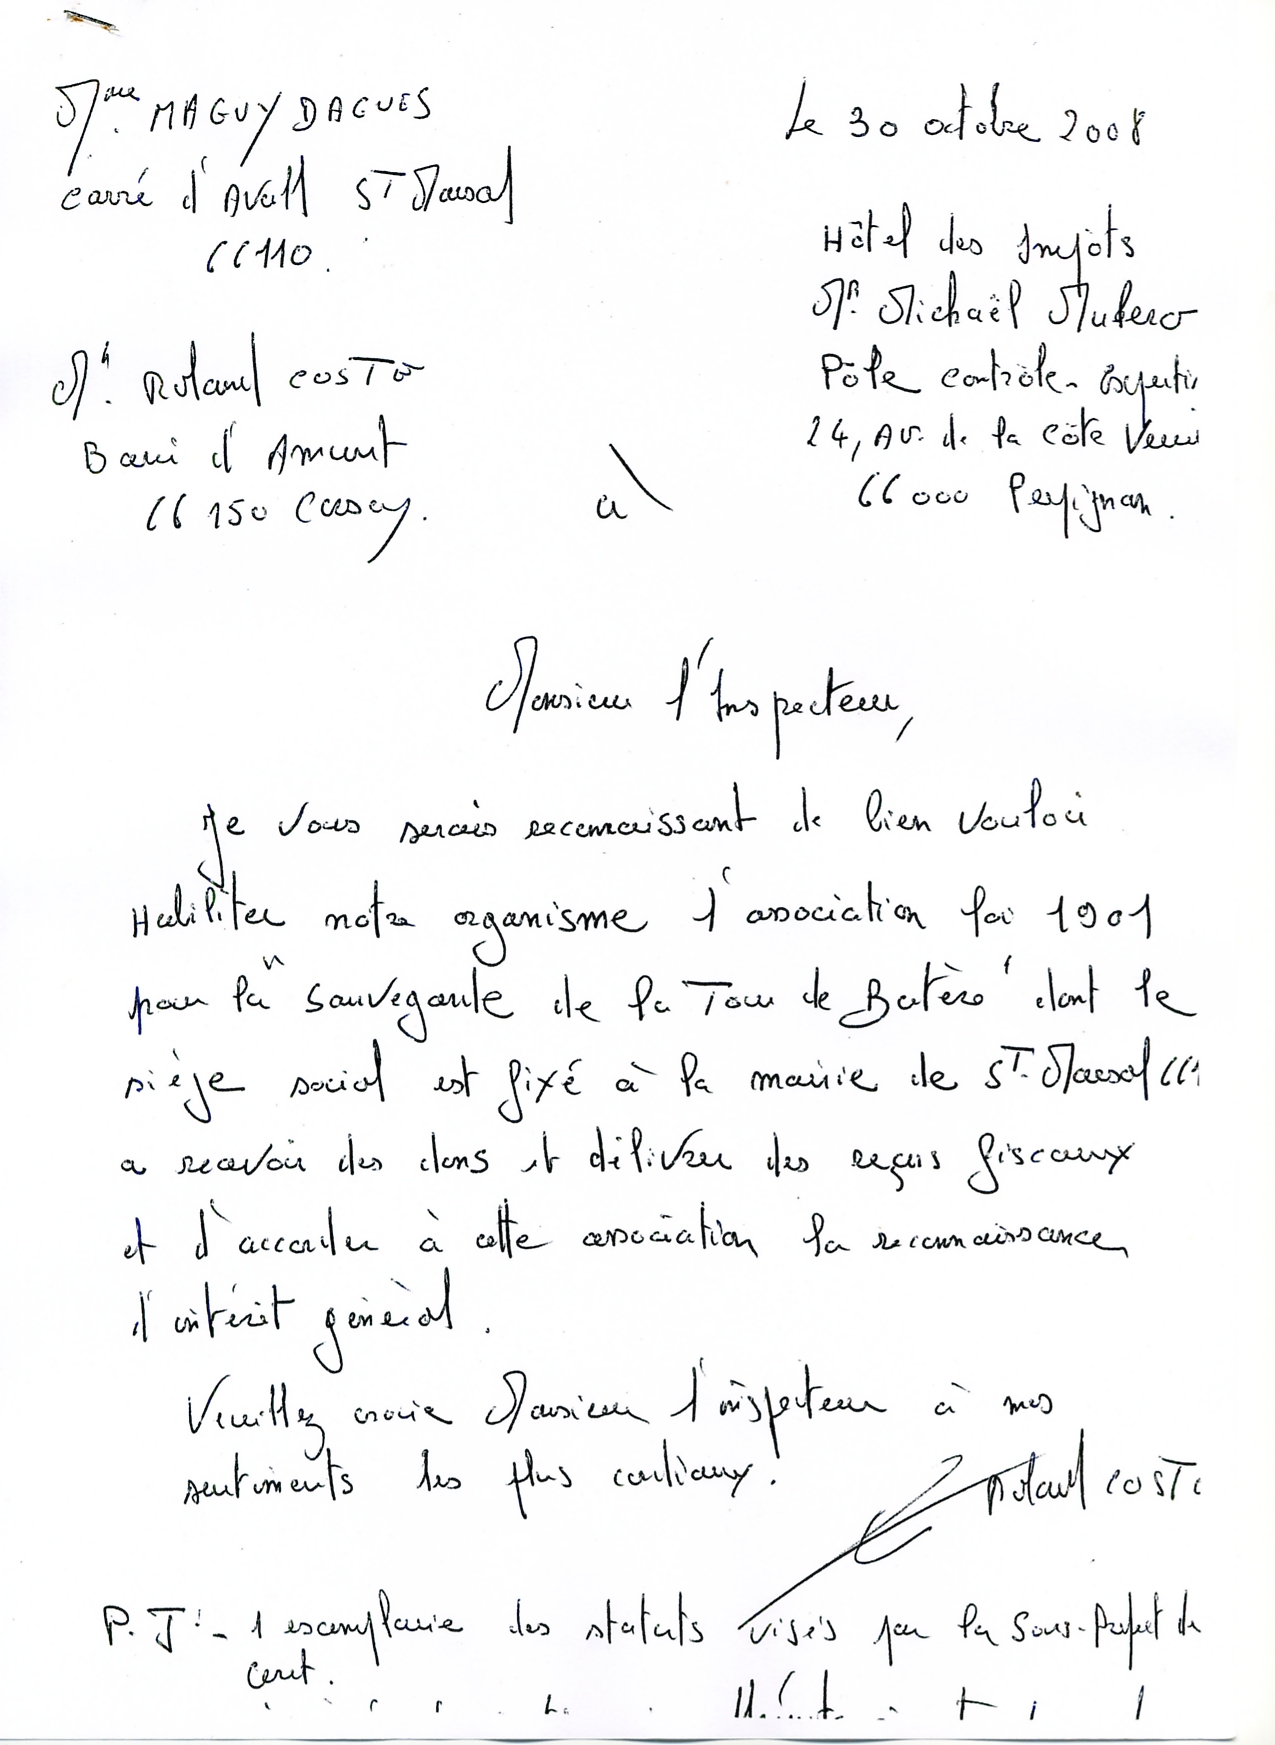 Mme MAGUY DAGUES
carré d'Avall ST Marsal
66110.
Le 30 octobre 2008
Hôtel des Impôts
MR. Michaël Mulero
Pôle contrôle - Experti
24, Av. de la Côte Verm
66000 Perpignan.
Mr. Roland COSTE
Barri d'Amunt
66150 Corsavy.
à
Monsieur l'Inspecteur,
Je vous serais reconnaissant de bien vouloir
Habiliter notre organisme l'association loi 1901
pour la "Sauvegarde de la Tour de Batère" dont le
siège social est fixé à la mairie de ST. Marsal 661
a recevoir des dons et délivrer des reçus fiscaux
et d'accorder à cette association la reconnaissance
d'intérêt général.
Veuillez croire Monsieur l'inspecteur à mes
sentiments les plus cordiaux.
Roland COSTE
P.J: - 1 exemplaire des statuts visés par la Sous-Préfet de
Ceret.